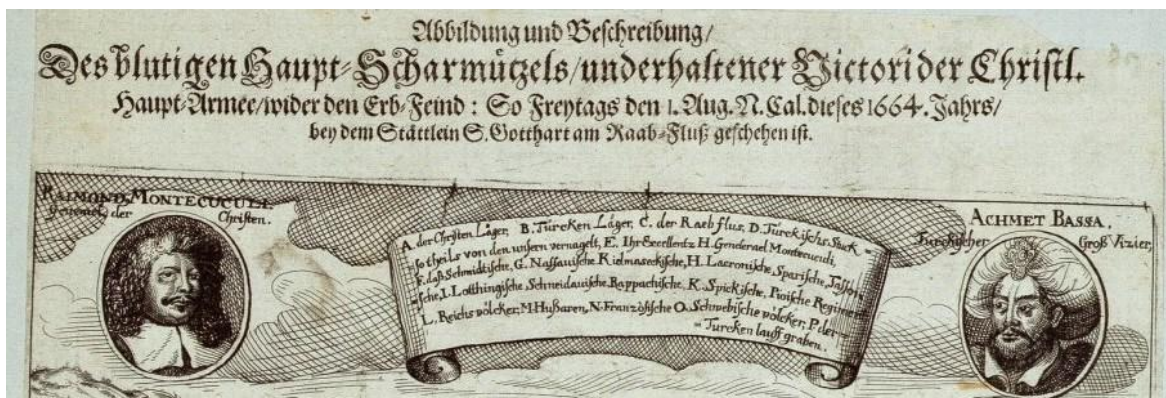 Abbildung und Beschreibung/
Des blutigen Haupt-Scharmützels/und erhaltener Victori der Christl.
Haupt-Armee/wider den Erb-Feind: So Freytags den 1. Aug. N. Cal. dieses 1664. Jahrs/
bey dem Stättlein S. Gotthart am Raab-Fluß geschehen ist.
RAIMOND, MONTECUCULI.
General, der Christen.
A der Chrjsten Läger, B. Türcken Läger, C. der Raebflus, D. Türckischs. Stuck
so theils von den unsern vernagelt, E. Ihr Excellentz H. Genderael Montecucuĺi,
F. daß Schmidtische, G. Naßauische Kielmaseckische, H. Lacronische, Sparische, Taßon-
=sche, I. Lotthingische, Schneidauische, Rappachische, K. Spickische, Pioische Regiment
L. Reichs völcker, M. Hußaren, N. Französische O. Schwebische völcker, P. der-
=Turcken lauff graben.
ACHMET BASSA,
Turckischer Groß Vizier,